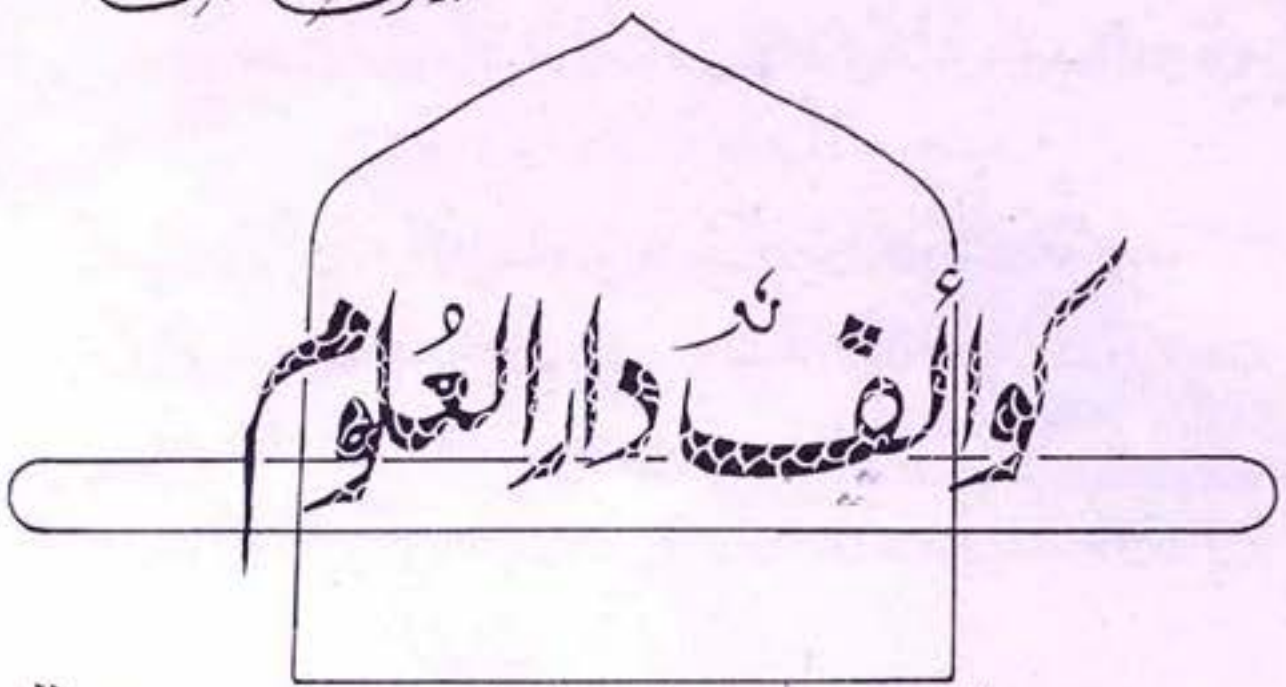 کوائف دارالعلوم